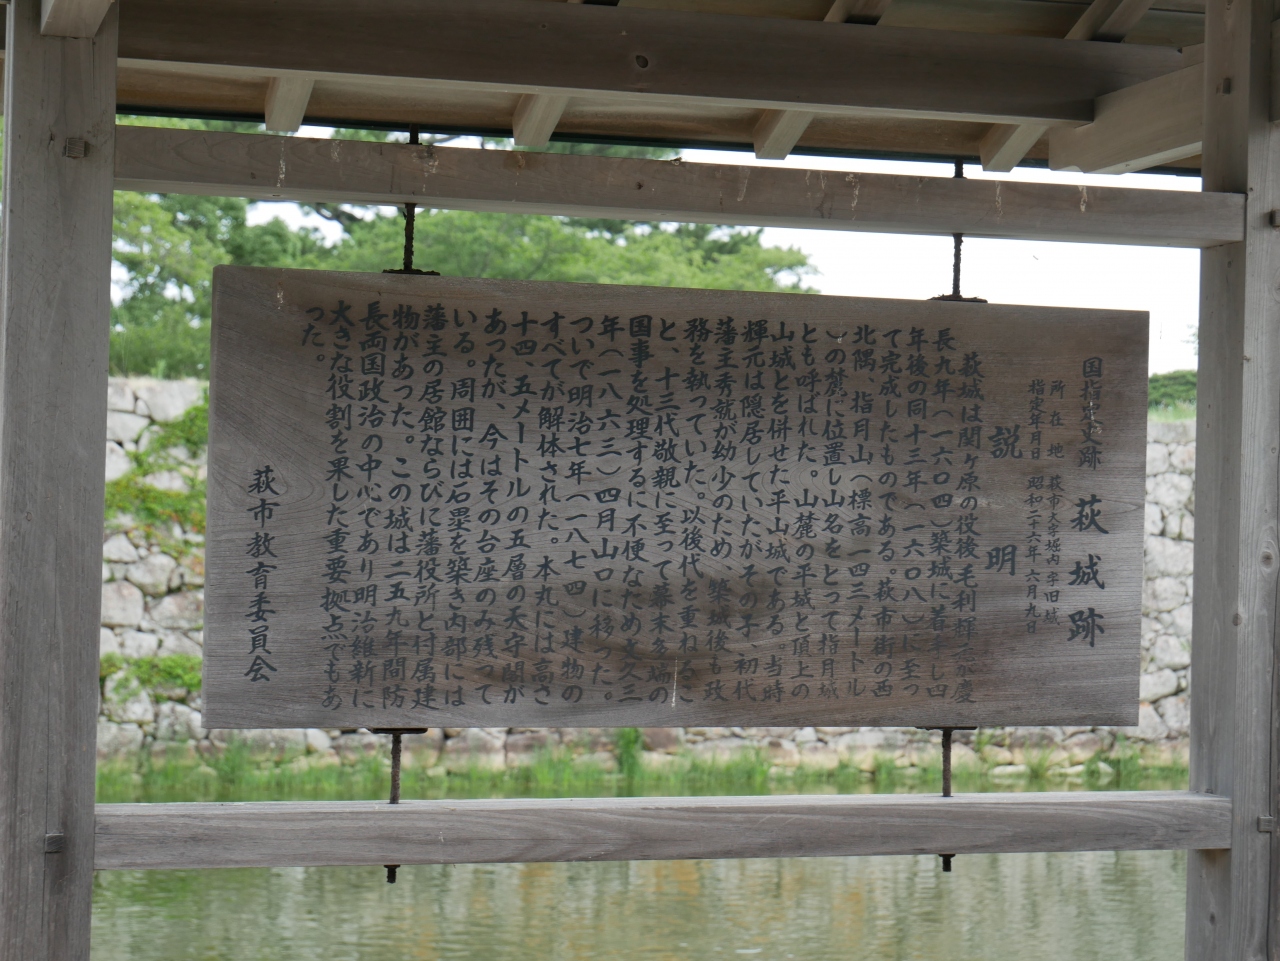 国指定史跡 萩城跡
所在地 萩市大字堀内字旧城
指定年月日 昭和二十六年六月九日
説明
萩城は関ヶ原の役後毛利輝元が慶
長九年(一六〇四)築城に着手し四
年後の同十三年(一六〇八)に至っ
て完成したものである。萩市街の西
北隅、指月山(標高一四三メートル
)の麓に位置し山名をとって指月城
とも呼ばれた。山麓の平城と頂上の
山城とを併せた平山城である。当時
輝元は隠居していたがその子、初代
藩主秀就が幼少のため 築城後も政
務を執っていた。以後代を重ねるこ
と、十三代敬親に至って幕末多端の
国事を処理するに不便なため文久三
年(一八六三)四月山口に移った。
ついで明治七年(一八七四)建物の
すべてが解体された。本丸には高さ
十四、五メートルの五層の天守閣が
あったが、今はその台座のみ残って
いる。周囲には石塁を築き内部には
藩主の居館ならびに藩役所と付属建
物があった。この城は二五九年間防
長両国政治の中心であり明治維新に
大きな役割を果した重要拠点でもあ
った。
萩市教育委員会